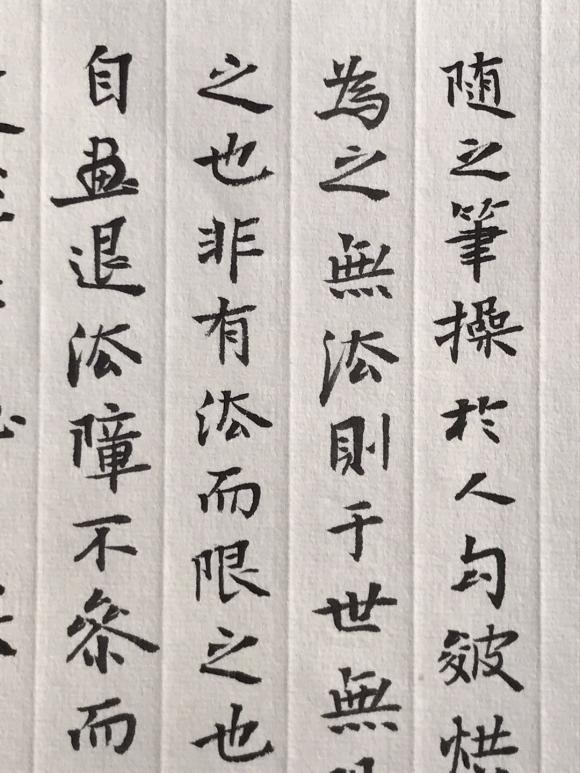 随之筆操於人勾皴烘
為之無法則于世無限
之也非有法而限之也
自畫退法障不参而